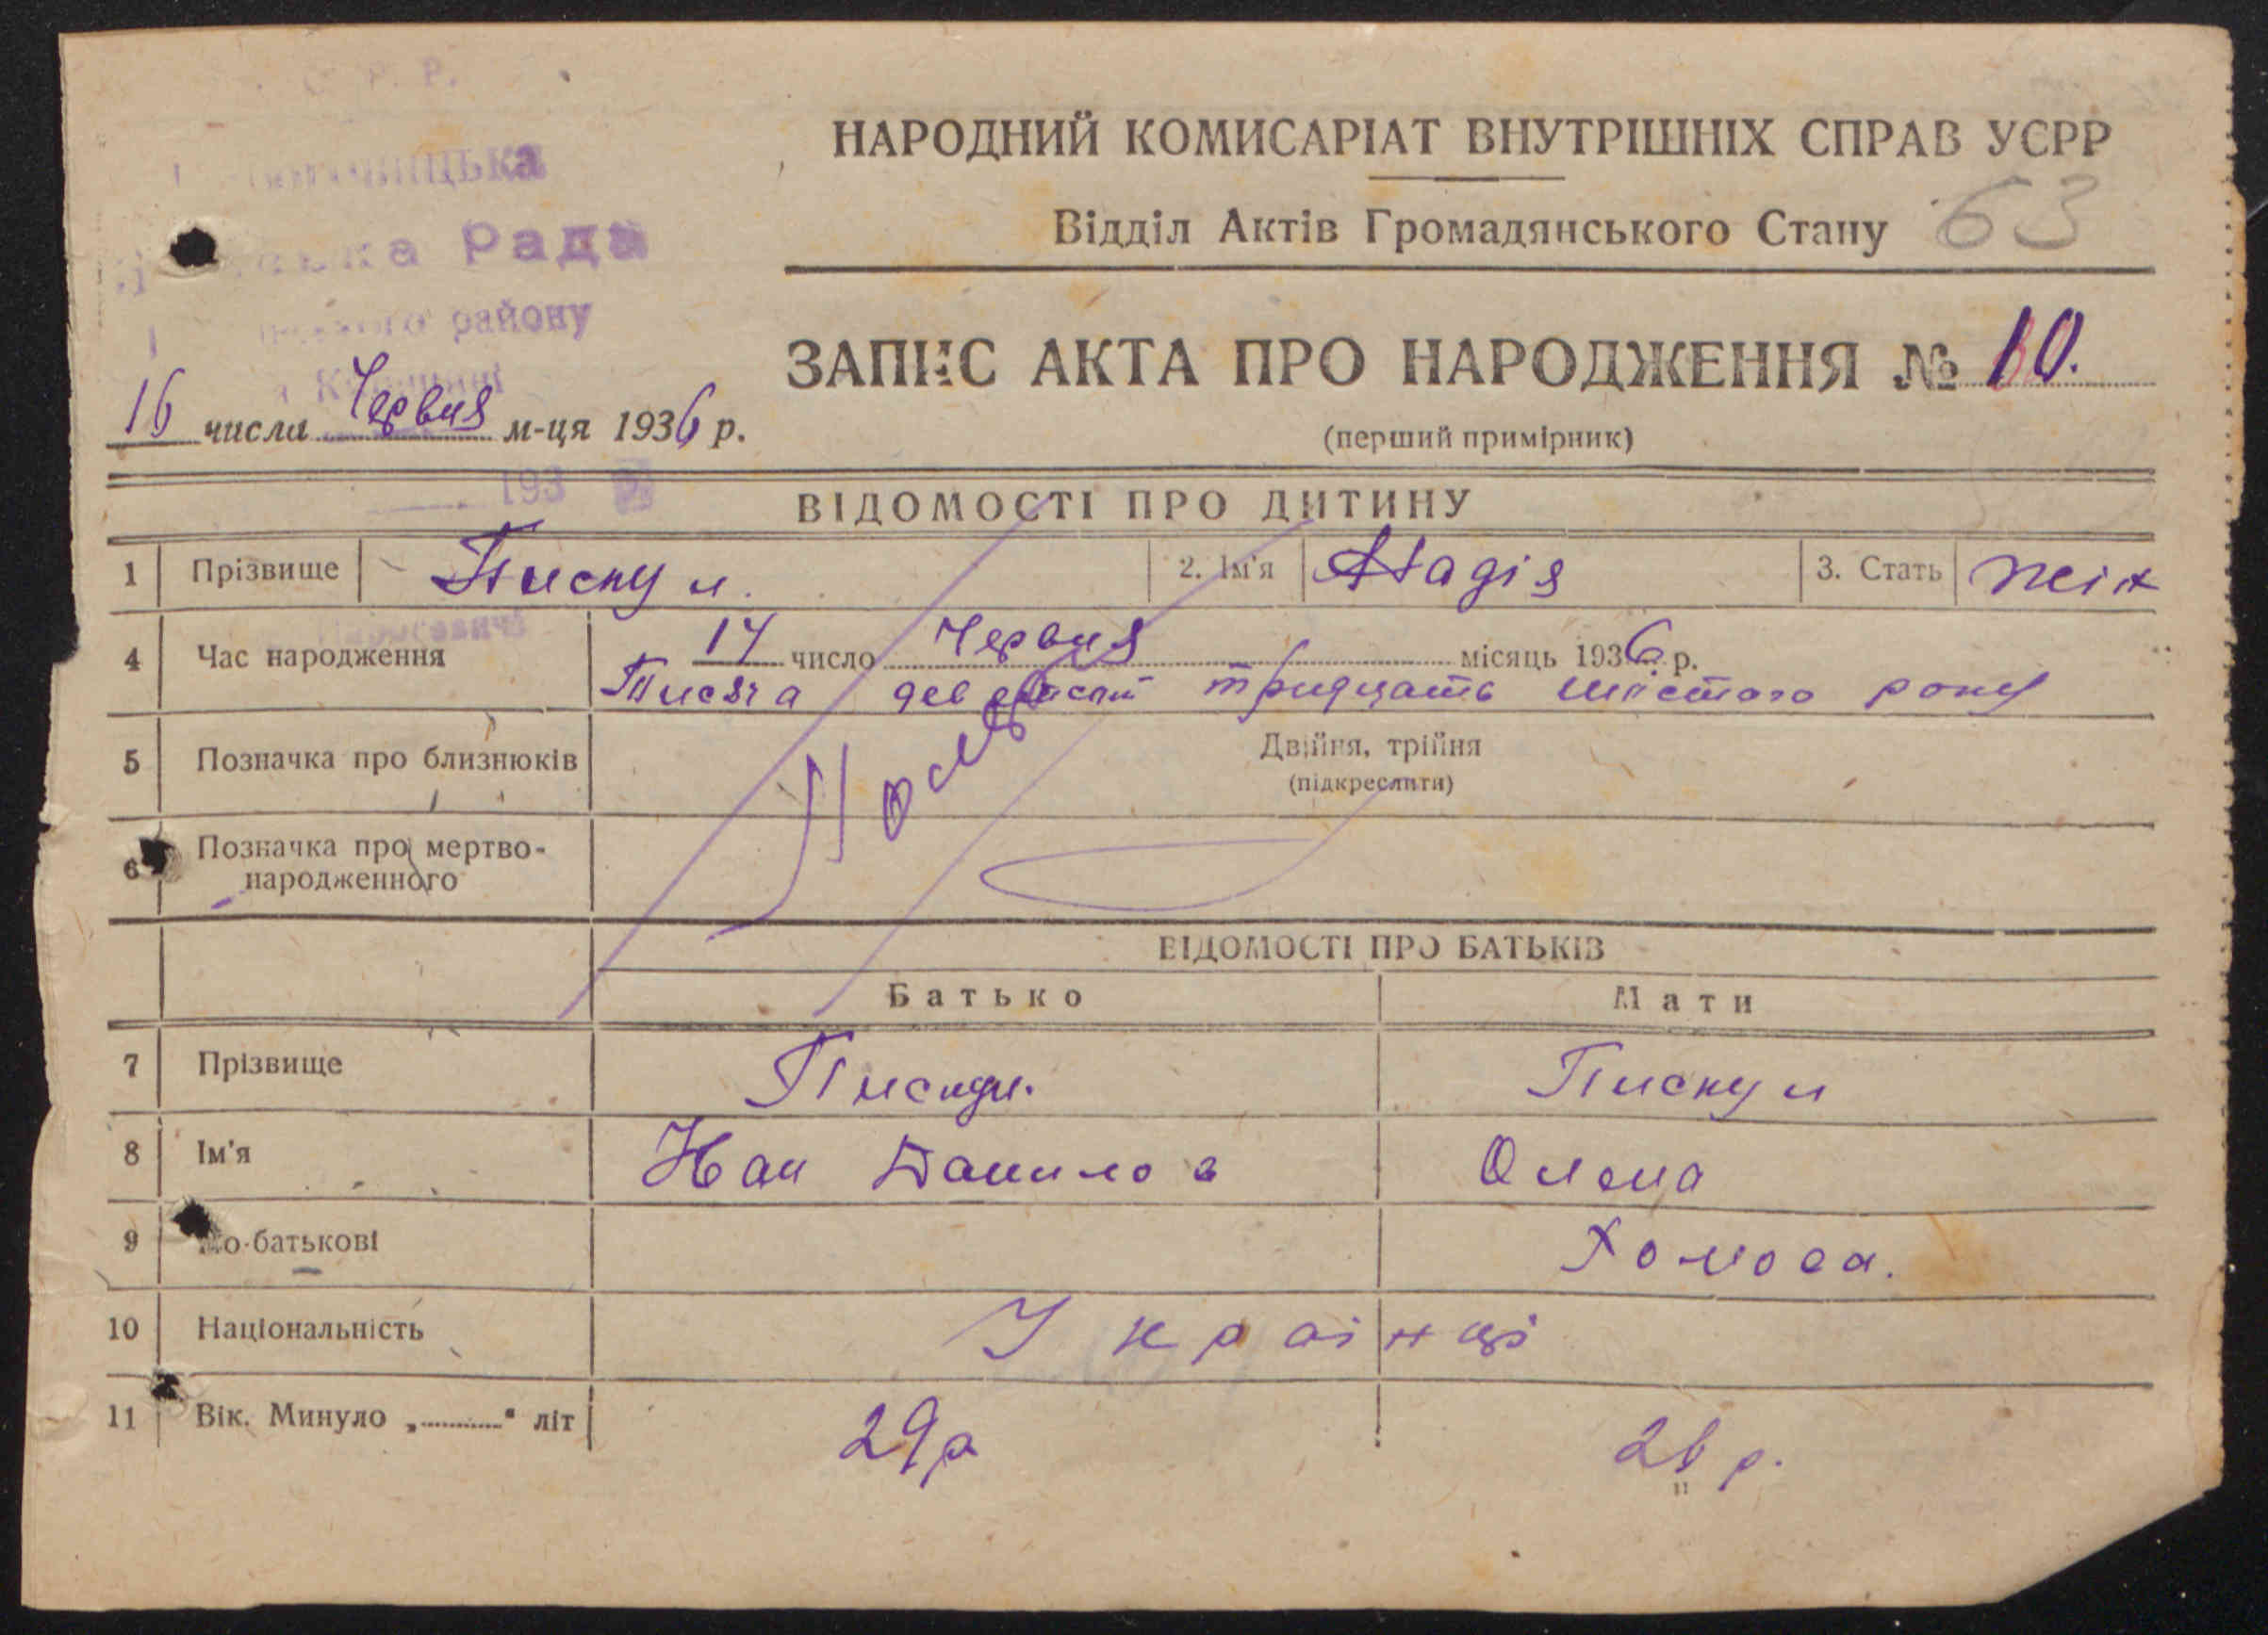 Р. Р.
НАРОДНИЙ КОМИСАРІАТ ВНУТРІШНІХ СПРАВ УСРР
Відділ Актів Громадянського Стану 63
Рада
району
ЗАПИС АКТА ПРО НАРОДЖЕННЯ № 10.
16 числа Червня м-ця 1936 р.
(перший примірник)
193
ВІДОМОСТІ ПРО ДИТИНУ
1 Прізвище Пискун. 2. Ім'я Надія 3. Стать жін
4 Час народження 14 число Червня місяць 1936 р.
Тисяча тридцать шістого року
5 Позначка про близнюків Двійня, трійня
(підкреслити)
6 Позначка про мертво-
народженного
ВІДОМОСТІ ПРО БАТЬКІВ
Батько Мати
7 Прізвище Пискун. Пискун
8 Ім'я Іван Данилов Олена
9 По-батькові Хомова.
10 Національність Українці
11 Вік. Минуло „ “ літ 29 р 26 р.